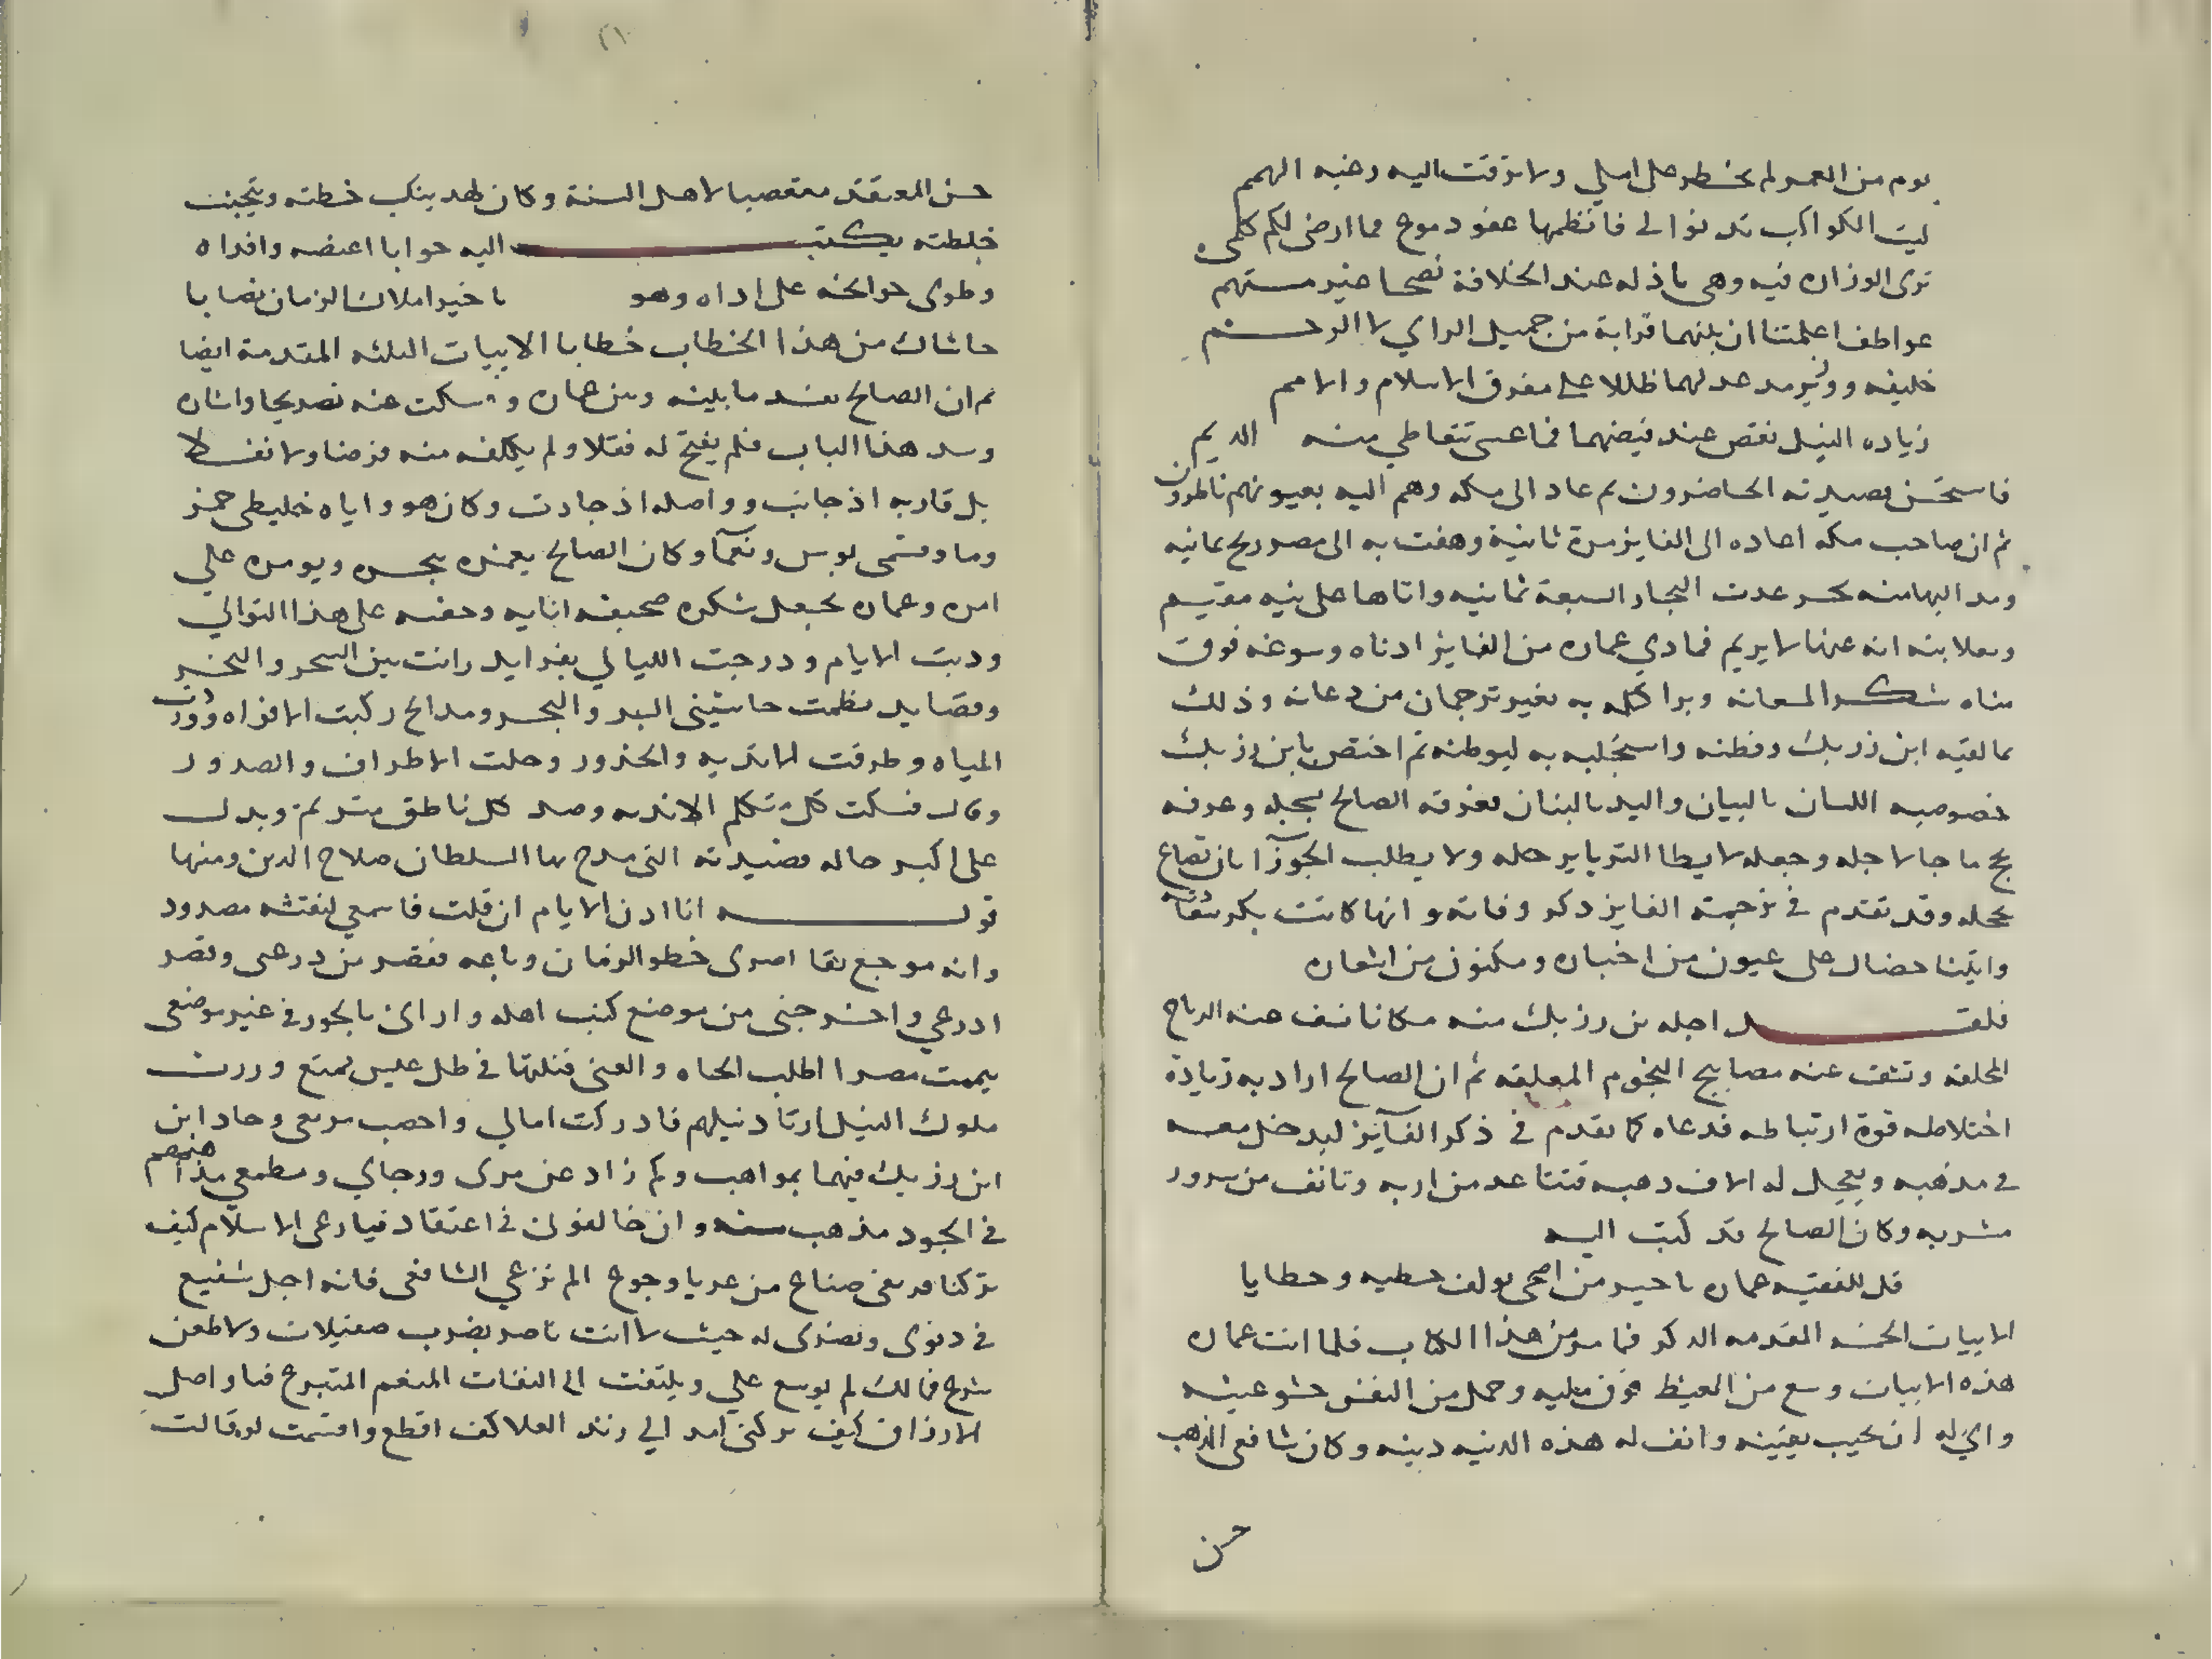 يوم من العمر لم يخطر على املي ولا ترقت اليه رغبه الهمم
ليت الكواكب تدنو الي فانظمها عقود مدح فما ارضى لكم كلمى
ترى الوزاره فيه وهى باذله عند الخلافة نصحا غير متهم
عواطف اعلمتنا ان بينهما قرابة من جميل الراي لا الرحم
خليفه ووزير مد عدلهما ظلا على مفرق الاسلام والامم
زياده النيل نقص عند فيضهما فما عسى تتعاطي منه الديم
فاستحسن قصيدته الحاضرون ثم عاد الى مكه وهم اليه بعيونهم
ثم ان صاحب مكه اعاده الى الفايز مرة ثانية وهفت به الى مصر ريح يمانيه
ومد اليها منه بحر عدت البحار السبعة ثمانيه واتاها على نيه مقيم
انه عنها لا يريم فمادي عماره من الفايز ادناه وسوغه فوق
مناه شكر وبرا به بغير ترجمان من دعانه وذلك
ابن رزيك وفطنه به لموطنه ثم اختص بابن رزيك
خصوصيه اللسان بالبيان واليد بالبنان فعرفه الصالح وعرفه
ما جا لاجله وجعله لا يطا الثريا برحله ولا يطلب الجوزآ
بمحله وقد تقدم في ترجمة الفايز ذكر وفاته و انها كانت
واتينا على عيون من اخباره ومكنون من اشعاره
فلقد احله بن رزيك منه مكانا تسف عنه الرياح
المحلقه وتشف عنه مصابيح النجوم المعلقه ثم ان الصالح اراد به زيادة
اختلاطه قوة ارتباطه فدعاه كما تقدم في ذكر الفآيز ليدخل معه
في مذهبه ويعجل له الاف ذهبه فتقاعد من اربه وتانف من مرور
مشربه وكان الصالح قد كتب اليه
قل للفقيه عماره يا خير من اضحى يولف خطبه وخطابا
الابيات الحسنه المقدمه الذكر فما مر من هذا الكتاب فلما اتت عماره
هذه الابيات وسع من الغيظ وحمل من النفس حشو
وابي له ان يجيب يقينه وانف له هذه الدنيه دينه وكان شافعى المذهب
حسن
حسن المعتقد متعصبا لاهل السنة وكان لهذا ينكب خطته ويتجنب
خلطته فكتب اليه جوابا اعضه واقذاه
وطوى جوانحه على اذاه وهو يا خير املاك الزمان نصابا
حاشاك من هذا الخطاب خطابا الابيات الثلثه المقدمة ايضا
ثم ان الصالح ما بينه وبين عماره وسكت عنه تصريحا واشاره
وسد هذا الباب فلم يفتح له قفلا ولم يكلفه منه فرضا ولا نفلا
بل قاربه اذ جانب وواصله اذ وكان هو واياه خليطى خمر
وما وقسمى بوس ونعمآ وكان الصالح يغمره ببحره ويومره علي
امره وعماره يجعل شكره صحيفه وحقه على هذا التوالي
ودبت الايام ودرجت الليالي بفرايد رانت بين السحر والنحر
وقصايد نظمت حاشيتى البر والبحر ومدائح ركبت الافواه ووردت
المياه وطرقت الانديه والخدور وحلت الاطراف والصدور
فسكت كل متكلم الانديه وصد كل ناطق وبدل
على اكبر حاله قصيدته التى مدح بها السلطان صلاح الدين ومنها
قوله ايا اذن الايام ان قلت فاسمعي لنفثه مصدور
وانه موجع تقاصرى خطو الزمان وباعه فقصر من ذرعى وقصر
اذرعي واخرجنى من موضع كنت اهله وارانى بالجور في غير موضعى
يممت مصرا اطلب الجاه والغنى فنلتها في ظل عيش ممنع وزرت
ملوك النيل ارتاد نيلهم فادركت امالي واخصب مربعى وجاد ابن
ابن رزيك فيهما بمواهب وكم زاد عن مرمى ورجاي ومطمعي مذاهبهم
في الجود مذهب سنه وان خالفونى في اعتقاد فيا رعى الاسلام كيف
تركتنا فريقى ضياع من عرايا وجوع الم ترعني الشافعى فانه اجل شفيع
في دنوى ونصرى له حيث لا انت ناصر بضرب صقيلات ولا طعن
شرع فما لك لم توسع علي ويلتفت الى التفات المنعم المتبرع فيا واصل
الارزاق كيف تركتنى امد الي زند العلا كف اقطع واقسمت لو قالت